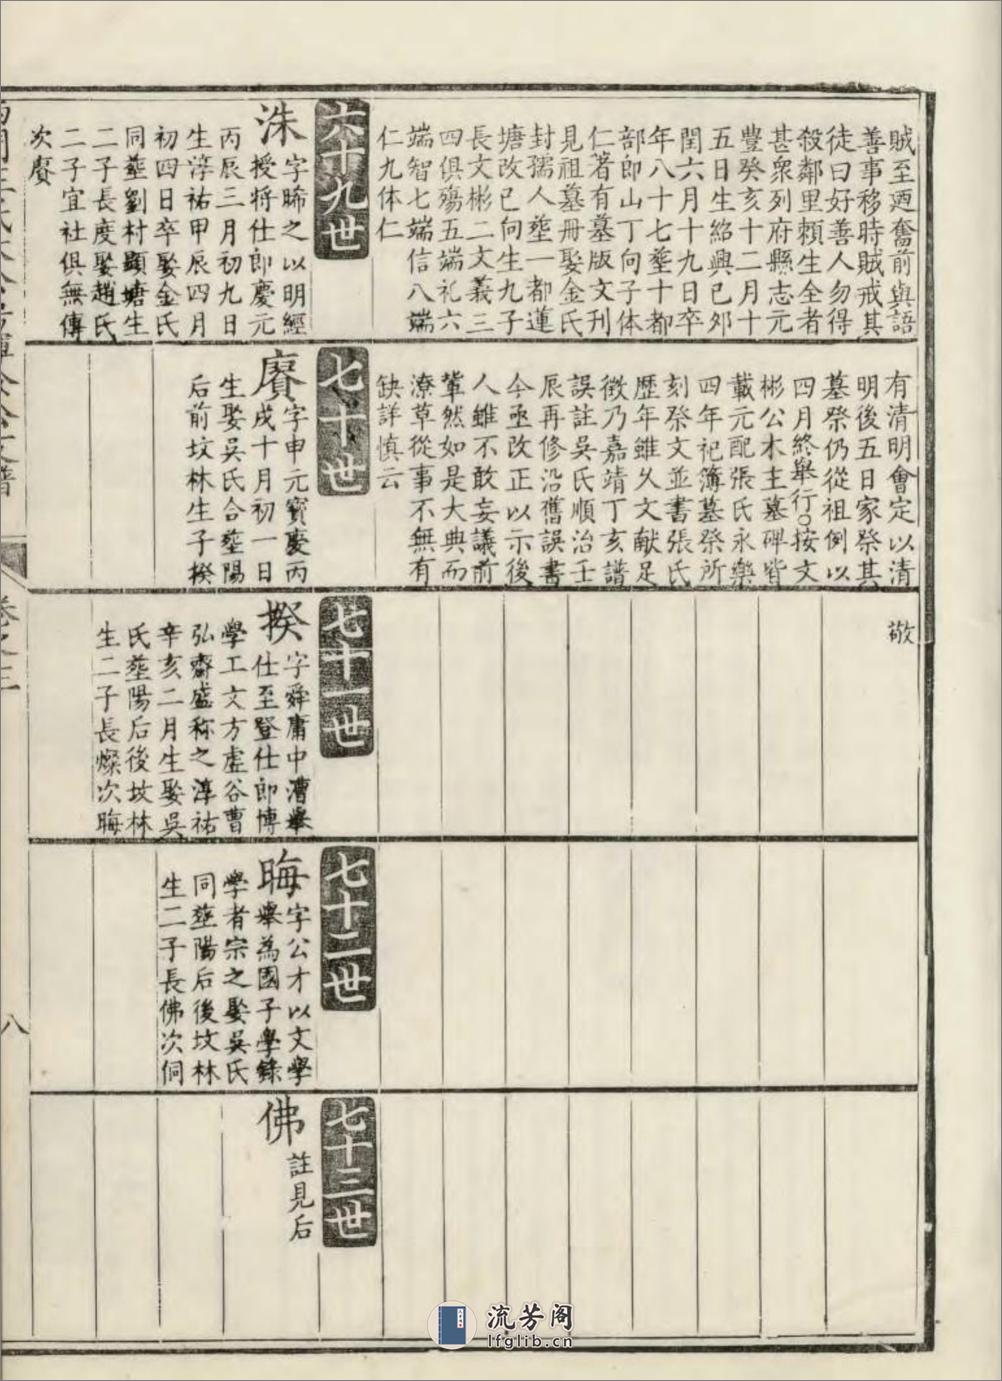 賊至廼奮前與語
善事移時賊戒其
徒曰好善人勿得
殺鄰里賴生全者
甚衆列府縣志元
豐癸亥十二月十
五日生紹興己夘
閏六月十九日卒
年八十七塟十都
部郎山丁向子体
仁著有墓版文刊
見祖墓册娶金氏
封孺人塟一都蓮
塘改巳向生九子
長文彬二文義三
四俱殤五端礼六
端智七端信八端
仁九体仁
六十九世
洙
字晞之以明經
授將仕郎慶元
丙辰三月初九日
生淳祐甲辰四月
初四日卒娶金氏
同塟劉村顯塘生
二子長度娶趙氏
二子宜社俱無傳
次賡
有清明會定以清
明後五日家祭其
墓祭仍從祖例以
四月終舉行○按文
彬公木主墓碑皆
載元配張氏永樂
四年祀簿墓祭所
刻祭文並書張氏
歷年雖久文献足
徵乃嘉靖丁亥譜
誤註吳氏順治壬
辰再修沿舊誤書
今亟改正以示後
人雖不敢妄議前
輩然如是大典而
潦草從事不無有
缺詳慎云
七十世
賡
字申元寳慶丙
戌十月初一日
生娶吳氏合塟陽
后前坟林生子揆
敬
七十一世
揆
字舜庸中漕舉
仕至登仕郎博
學工文方虛谷曹
弘齋盛称之淳祐
辛亥二月生娶吳
氏塟陽后後坟林
生二子長燦次晦
七十二世
晦
字公才以文學
舉為國子學錄
學者宗之娶吳氏
同塟陽后後坟林
生二子長佛次侗
七十三世
佛
註見后
卷之三
八
流芳阁
lfglib.cn